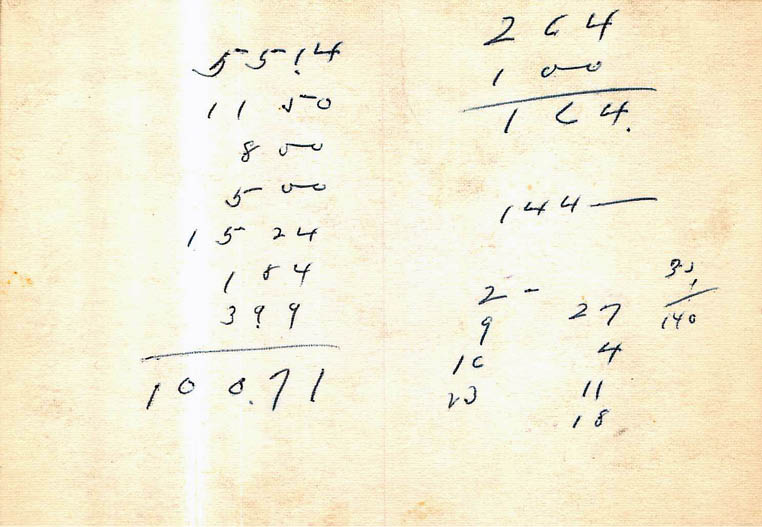 55.14
11 50
8 00
5 00
15 24
1 84
3 99
100.71
264
100
164.
144—
2 -
9
16
23
27
4
11
18
140